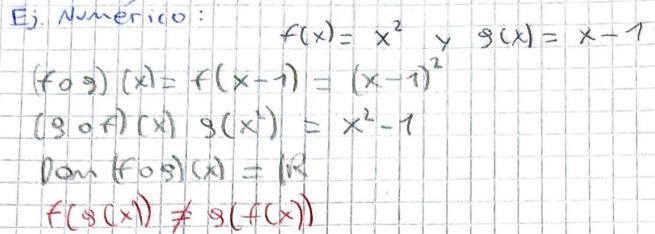 Ej. Numérico:
f(x) = x² y g(x) = x - 1
(f o g)(x) = f(x-1) = (x-1)²
(g o f)(x) g(x²) = x² - 1
Dom (f o g)(x) = ℝ
f(g(x)) ≠ g(f(x))